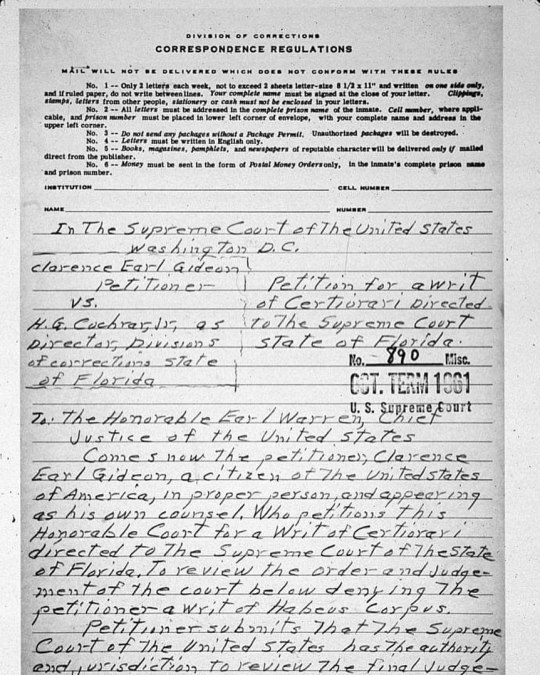 DIVISION OF CORRECTIONS
CORRESPONDENCE REGULATIONS
MAIL WILL NOT BE DELIVERED WHICH DOES NOT CONFORM WITH THESE RULES
No. 1 -- Only 2 letters each week, not to exceed 2 sheets letter-size 8 1/2 x 11" and written on one side only,
and if ruled paper, do not write between lines. Your complete name must be signed at the close of your letter. Clippings,
stamps, letters from other people, stationery or cash must not be enclosed in your letters.
No. 2 -- All letters must be addressed in the complete prison name of the inmate. Cell number, where appli-
cable, and prison number must be placed in lower left corner of envelope, with your complete name and address in the
upper left corner.
No. 3 -- Do not send any packages without a Package Permit. Unauthorized packages will be destroyed.
No. 4 -- Letters must be written in English only.
No. 5 -- Books, magazines, pamphlets, and newspapers of reputable character will be delivered only if mailed
direct from the publisher.
No. 6 -- Money must be sent in the form of Postal Money Orders only, in the inmate's complete prison name
and prison number.
INSTITUTION CELL NUMBER
NAME NUMBER
In The Supreme Court of The United States
Washington D.C.
clarence Earl Gideon
Petitioner
vs.
H.G. Cochran, Jr, as
Director, Divisions
of corrections state
of Florida
Petition for a writ
of Certiorari Directed
to The Supreme Court
State of Florida.
No. 890 Misc.
OCT. TERM 1961
U. S. Supreme Court
To: The Honorable Earl Warren, Chief
Justice of the United States
Comes now The petitioner, Clarence
Earl Gideon, a citizen of The United states
of America, in proper person, and appearing
as his own counsel. Who petitions this
Honorable Court for a Writ of Certiorari
directed to The Supreme Court of The State
of Florida. To review the order and Judge-
ment of the court below denying The
petitioner a writ of Habeus Corpus.
Petitioner submits That The Supreme
Court of The United States has The authority
and jurisdiction to review the final Judge-